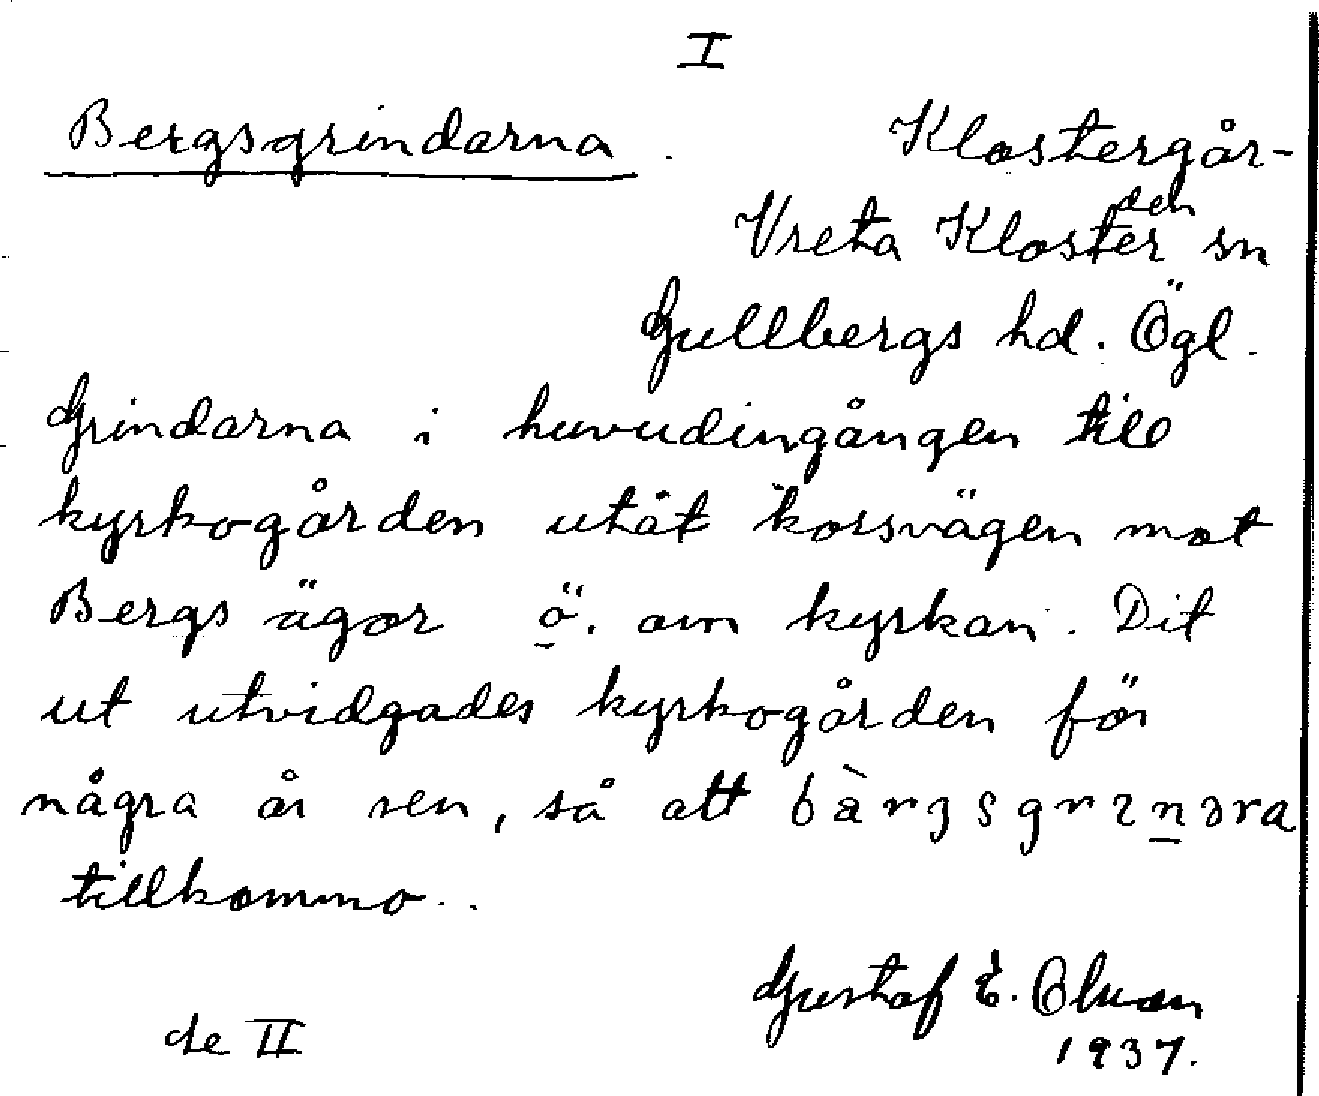 I
Bergsgrindarna. Klostergår-
den
Vreta Kloster sn
Gullbergs hd. Ögl.
Grindarna i huvudingången till
kyrkogården utåt korsvägen mot
Bergs ägor ö. om kyrkan. Dit
ut utvidgades kyrkogården för
några år sen, så att
tillkommo..
Gustaf E. Olsson
1937.
se II